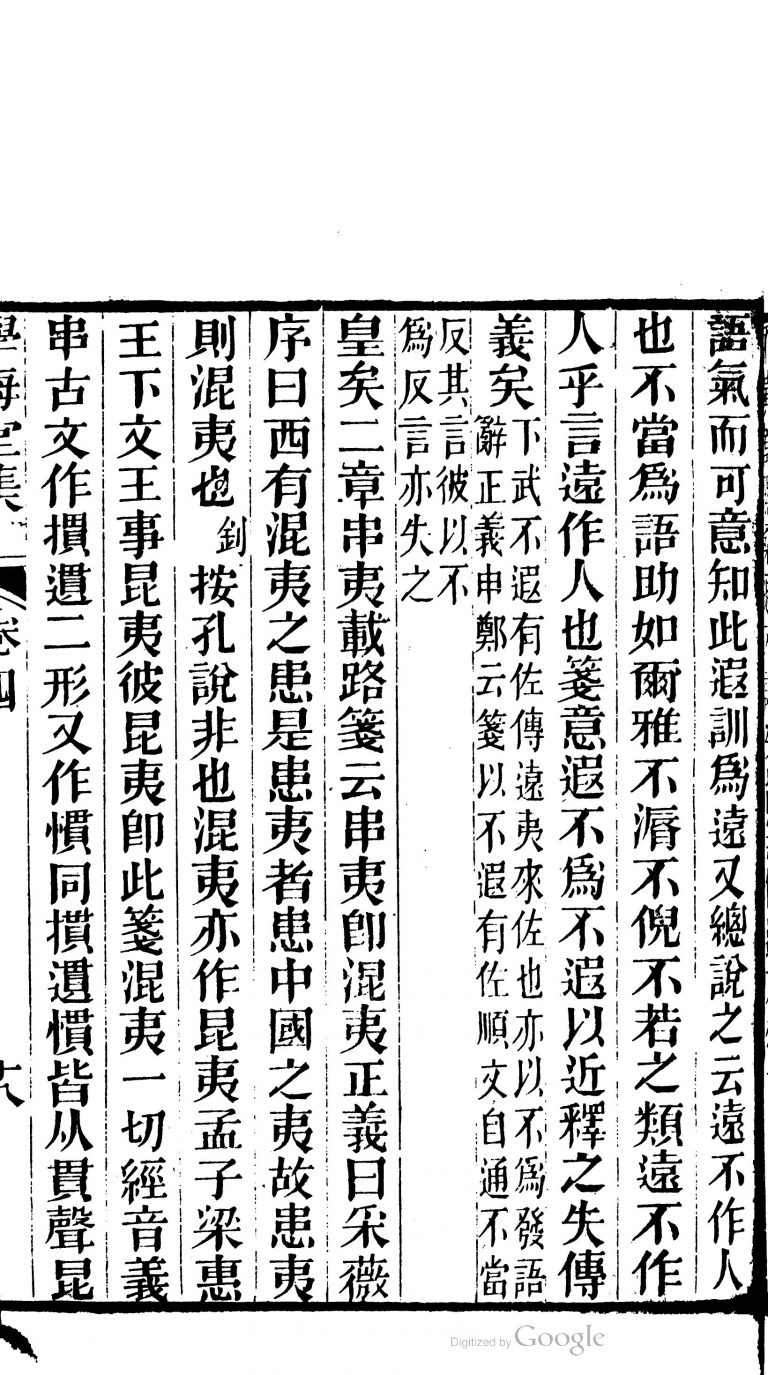 語氣而可意知此遐訓爲遠又總說之云遠不作人
也不當爲語助如爾雅不漘不倪不若之類遠不作
人乎言遠作人也箋意遐不爲不遐以近釋之失傳
義矣
下武不遐有佐傳遠夷來佐也亦以不爲發語
辭正義申鄭云箋以不遐有佐順文自通不當
反其言彼以不
爲反言亦失之
皇矣二章串夷載路箋云串夷卽混夷正義曰采薇
序曰西有混夷之患是患夷者患中國之夷故患夷
則混夷也 釗按孔說非也混夷亦作昆夷孟子梁惠
王下文王事昆夷彼昆夷卽此箋混夷一切經音義
串古文作摜遺二形又作慣同摜遺慣皆从貫聲昆
學海堂集
卷四
十八
Digitized by Google